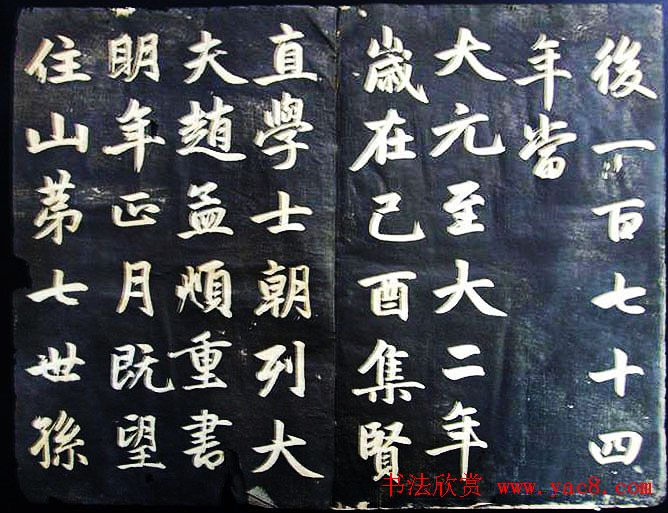 後一百七十四
年當
大元至大二年
歲在己酉集賢
直學士朝列大
夫趙孟頫重書
明年正月既望
住山第七世孫
书法欣赏 www.yac8.com